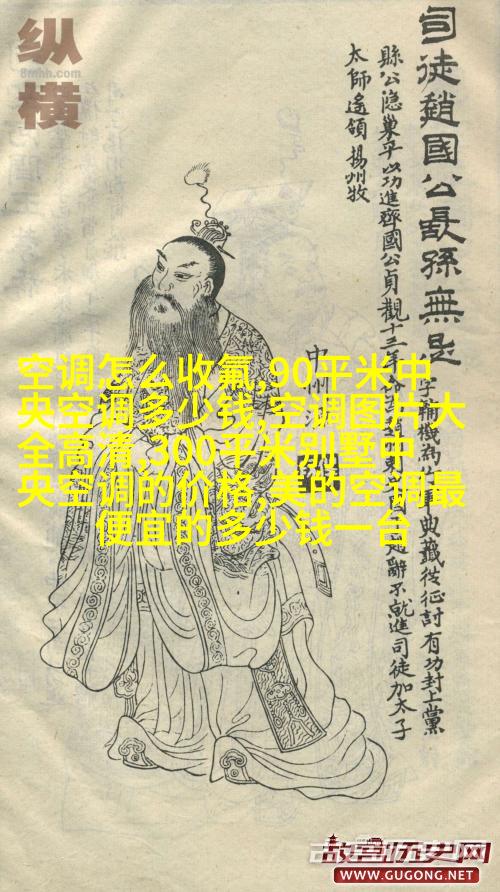 纵
8mhh.com
横
司徒趙國公長孫無忌
字輔機為行軍典籤從征討有功封上黨
縣公隐巢平以功進齊國公貞觀十三年辭不就進司徒加太子
太師遙領揚州牧
中州
空调怎么收氟,90平米中
央空调多少钱,空调图片大
全高清,300平米别墅中
央空调的价格,美的空调最
便宜的多少钱一台
故宫历史网
WWW.GUGONG.NET